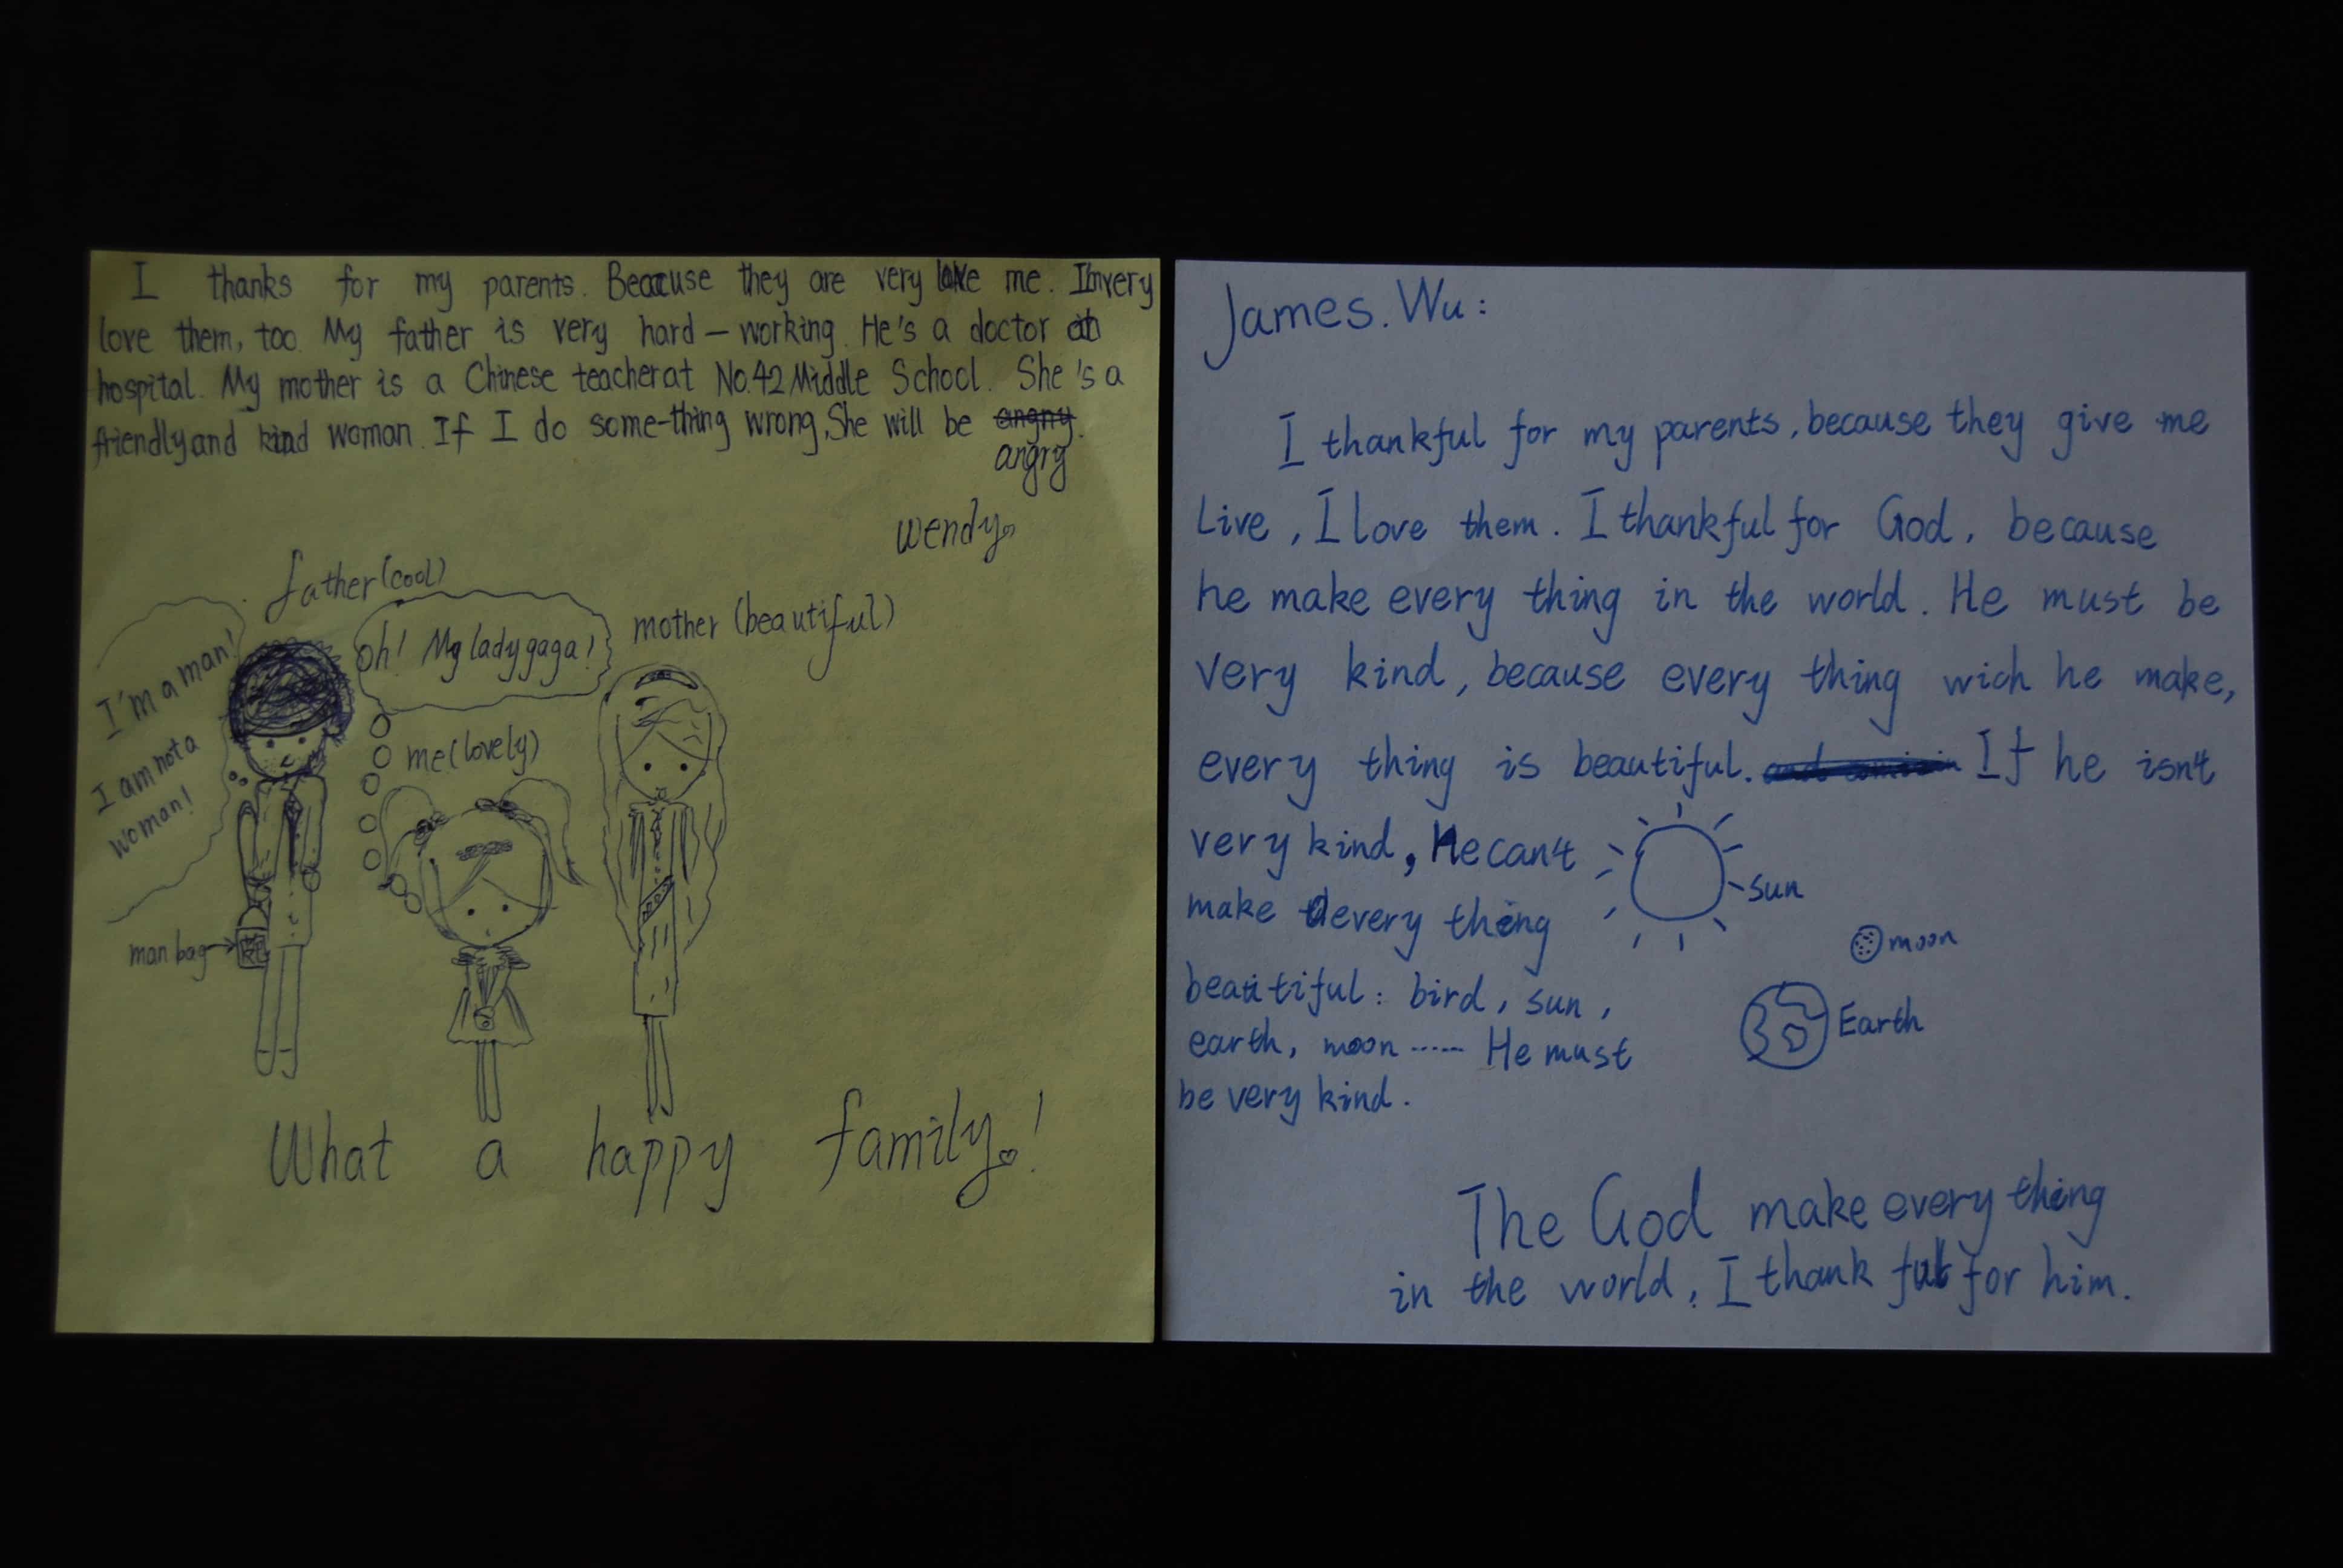 I thanks for my parents. Beacuse they are very love me. I'm very
love them, too. My father is very hard-working. He's a doctor at
hospital. My mother is a Chinese teacher at No.42 Middle School. She's a
friendly and kind woman. If I do some-thing wrong, She will be angny.
angry
wendy
father (cool)
oh! My lady gaga!
mother (beautiful)
I'm a man!
I am not a
woman!
me (lovely)
man bag
What a happy family!
James. Wu:
I thankful for my parents, because they give me
Live, I love them. I thankful for God, because
he make every thing in the world. He must be
very kind, because every thing wich he make,
every thing is beautiful. If he isn't
very kind, He can't
make every thing
beautiful: bird, sun,
earth, moon ······ He must
be very kind.
sun
moon
Earth
The God make every thing
in the world, I thankful for him.